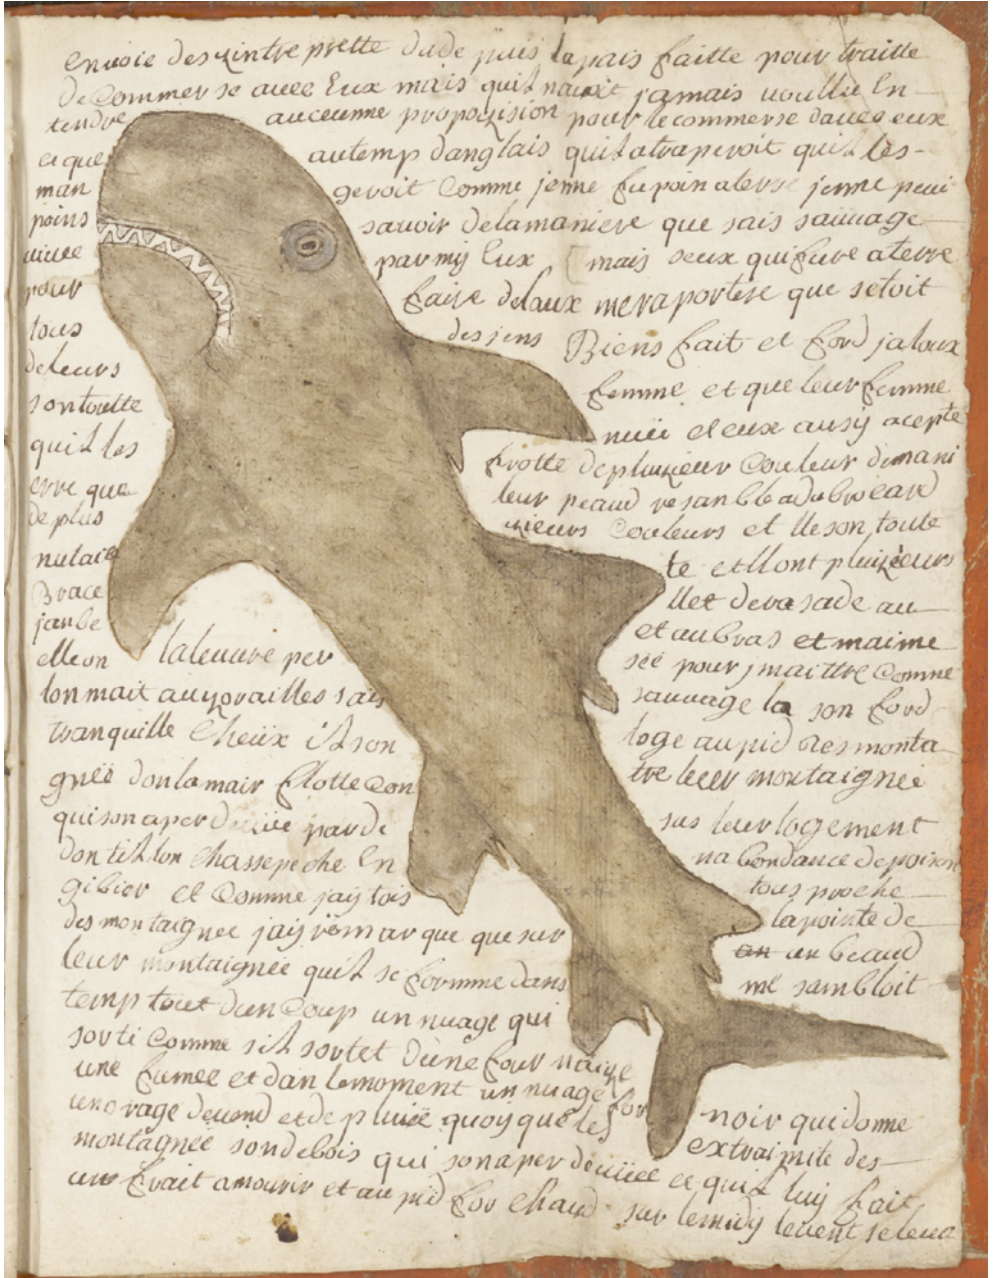 envoie des xintreprette dude puis la pais faitte pour traitte
de Commerse avec Eux mais quil navoit jamais voullu En
tendre auceunne propoxision pour le commerse daveq eux
ce que autemp danglais quil atraperoit quil les
man geroit Comme jenne fu poin aterre jenne peux
poins savoir de la maniere que sais sauvage
vivee par mij Eux mais seux qui fure aterre
pour faire de laux me raportere que setoit
tous des jens Biens fait et ford jaloux
de leurs femme et que leur femme
son toutte nuëi et eux ausy acepte
quil les frotte de pluxieur Couleur dimani
erre que leur peaud resanble adu brocard
de plus xieurs Couleurs et lle son toute
nulaite et llont pluixieurs
Brace llet de rasade au
janbe et au bras et maime
elle on la leuvre per séé pour j maittre Comme
lon mait auxorailles sais sauvage la son ford
tranquille Cheüx il son loge au pid des monta
gnéé don la mair flotte Con tre leur montaignéé
qui son aper deviie par de sus leur logement
don til lon Chasse peche En nabondance de poison
gibier et Comme jaij tois tous proche
des montaignee jaij remarque que sur la pointe de
leur montaignéé quil se formme dans an un beaud
temp tout dun Coup un nuage qui me sambloit
sorti Comme sil sortet Düne four naixe
une fumée et dan le moment un nuage for noir qui donne
un orage de vend et de pluiië quoy que les extraimite des
montagnéé son de bois qui son aper de viiee ce quil luij fait
un frait a mourir et au pid for Chaud sur le midy le vent se leva